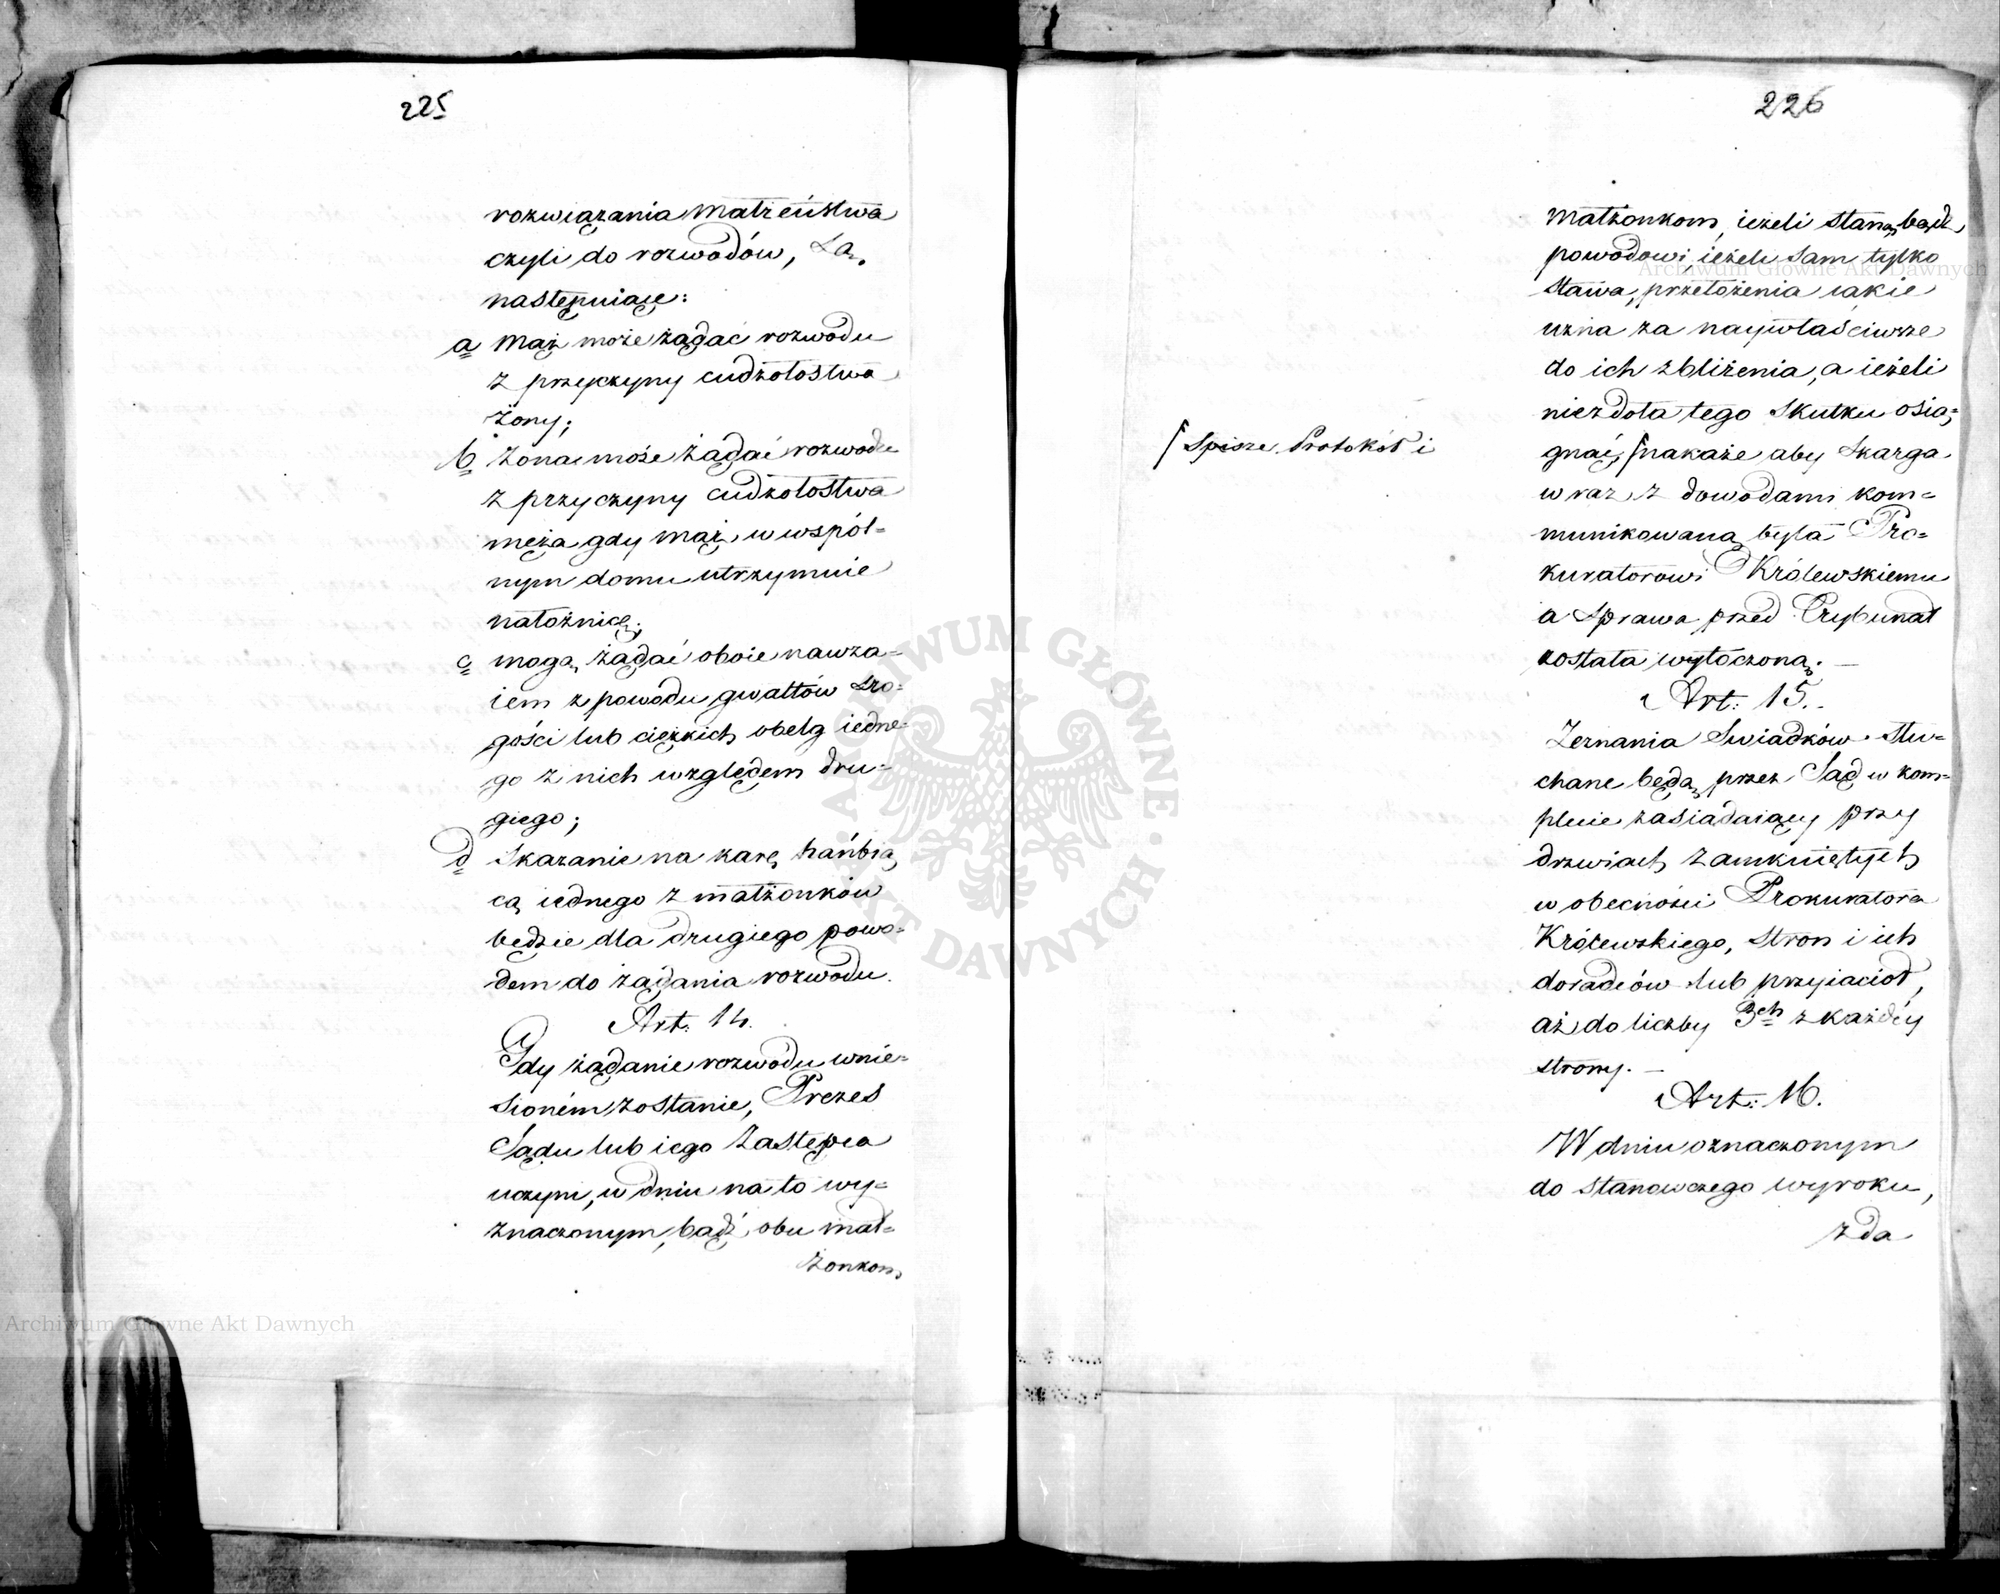 225
rozwiązania Małżeństwa
czyli do rozwodów, są
następuiące:
a Mąż może żądać rozwodu
z przyczyny cudzołostwa
żony;
b Żona może żądać rozwodu
z przyczyny cudzołostwa
męża gdy mąż, w wspól=
nym domu utrzymuie
nałożnicę;
c mogą żądać oboie nawza=
iem z powodu gwałtów sro=
gości lub ciężkich obelg iedne=
go z nich względem dru=
giego;
d Skazanie na karę hańbią
cą iednego z małżonków
będzie dla drugiego powo=
dem do żądania rozwodu.
Art: 14.
Gdy żądanie rozwodu wnie=
sioném zostanie, Prezes
Sądu lub iego Zastępca
uczyni, w dniu na to wy=
znaczonym, bądź obu mał=
żonkom
226
Małżonkom, ieżeli staną, bądź
powodowi ieżeli sam tylko
stawa, przełożenia iakie
uzna za naywłaściwsze
do ich zbliżenia, a ieżeli
niezdoła tego skutku osią=
gnąć, ſ nakaże aby Skarga
wraz z dowodami kom=
munikowaną była Pro=
kuratorowi Królewskiemu
a Sprawa przed Trybunał
została wytoczoną. —
ſ Spisze Protokół i
Art: 15.
Zeznania Swiadków słu=
chane będą, przez Sąd w kom=
plecie zasiadaiący przy
drzwiach zamkniętych
w obecności Prokuratora
Królewskiego, stron i ich
doradców lub przyiaciół,
aż do liczby 3ch z każdéy
strony. —
Art: 16.
W dniu oznaczonym
do stanowczego wyroku,
zda
Archiwum Główne Akt Dawnych
Archiwum Główne Akt Dawnych
ARCHIWUM GŁÓWNE · AKT DAWNYCH ·